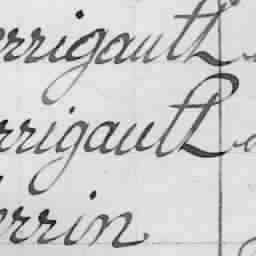 errigault
rrigault
errin